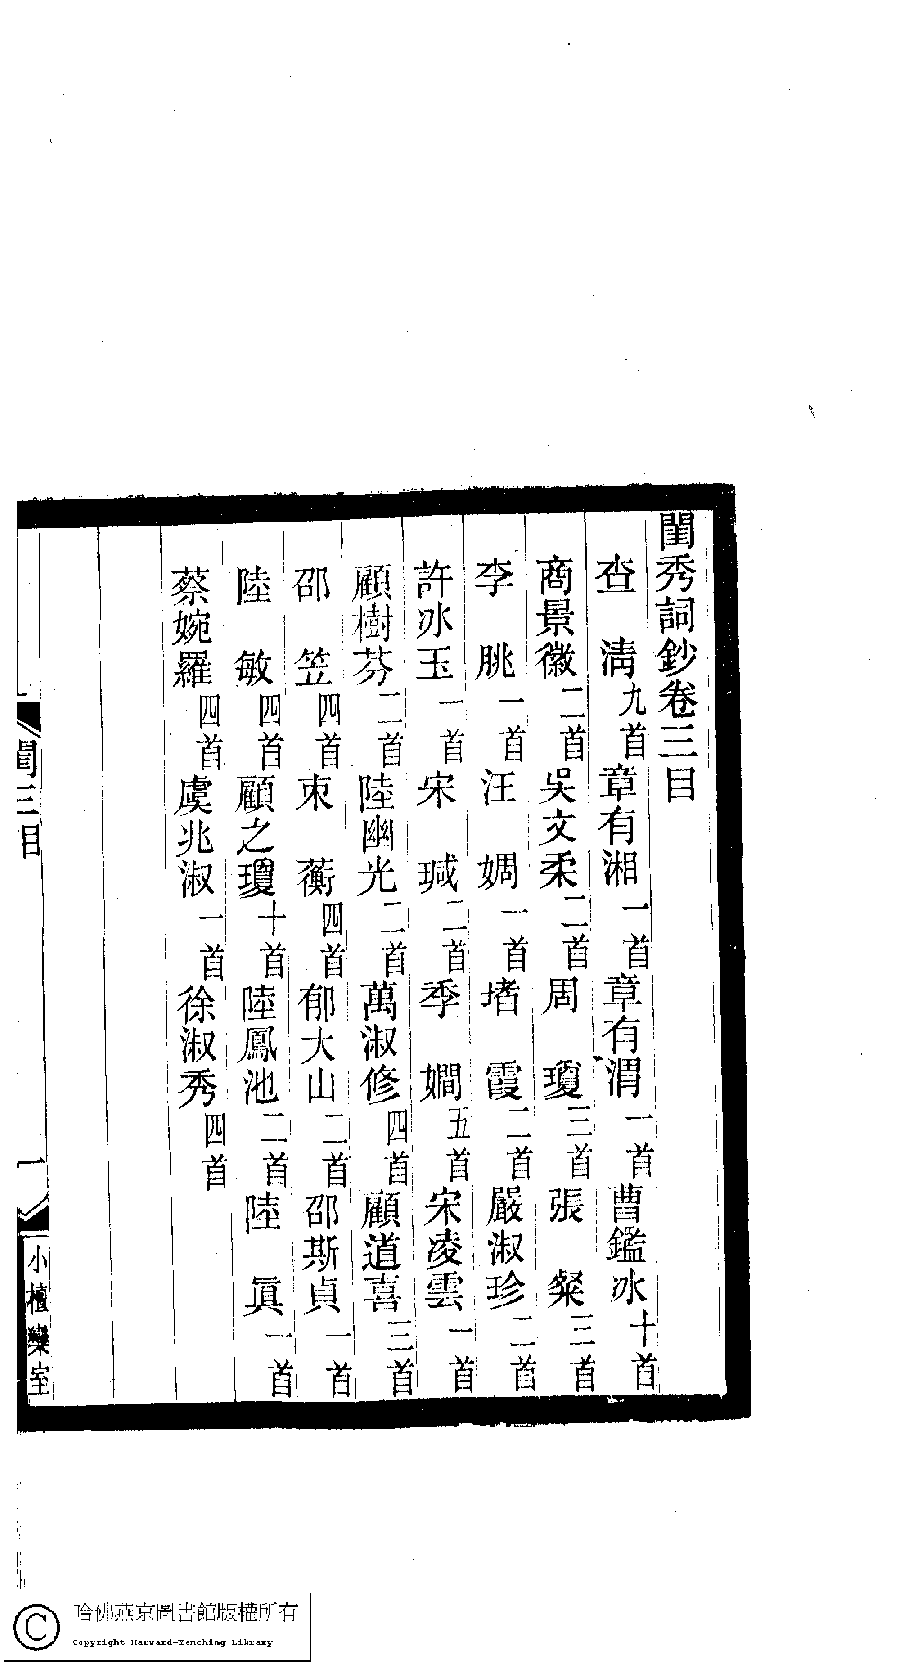 閨秀詞鈔卷三目
查 清九首章有湘一首章有渭一首曹鑑冰十首
商景徽二首吳文柔二首周 瓊三首張 粲三首
李 朓一首汪 嫻一首堵 霞二首嚴淑珍二首
許冰玉一首宋 瑊二首季 嫺五首宋凌雲一首
顧樹芬二首陸幽光二首萬淑修四首顧道喜三首
邵 笠四首束 蘅四首郁大山二首邵斯貞一首
陸 敏四首顧之瓊十首陸鳳池二首陸 眞一首
蔡婉羅四首虞兆淑一首徐淑秀四首
閨三目
一
小檀欒室
哈佛燕京圖書館版權所有
Copyright Harvard-Yenching Library